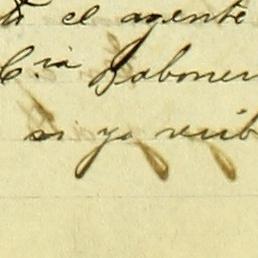 el agente
C.ia Babonen
si yo recib